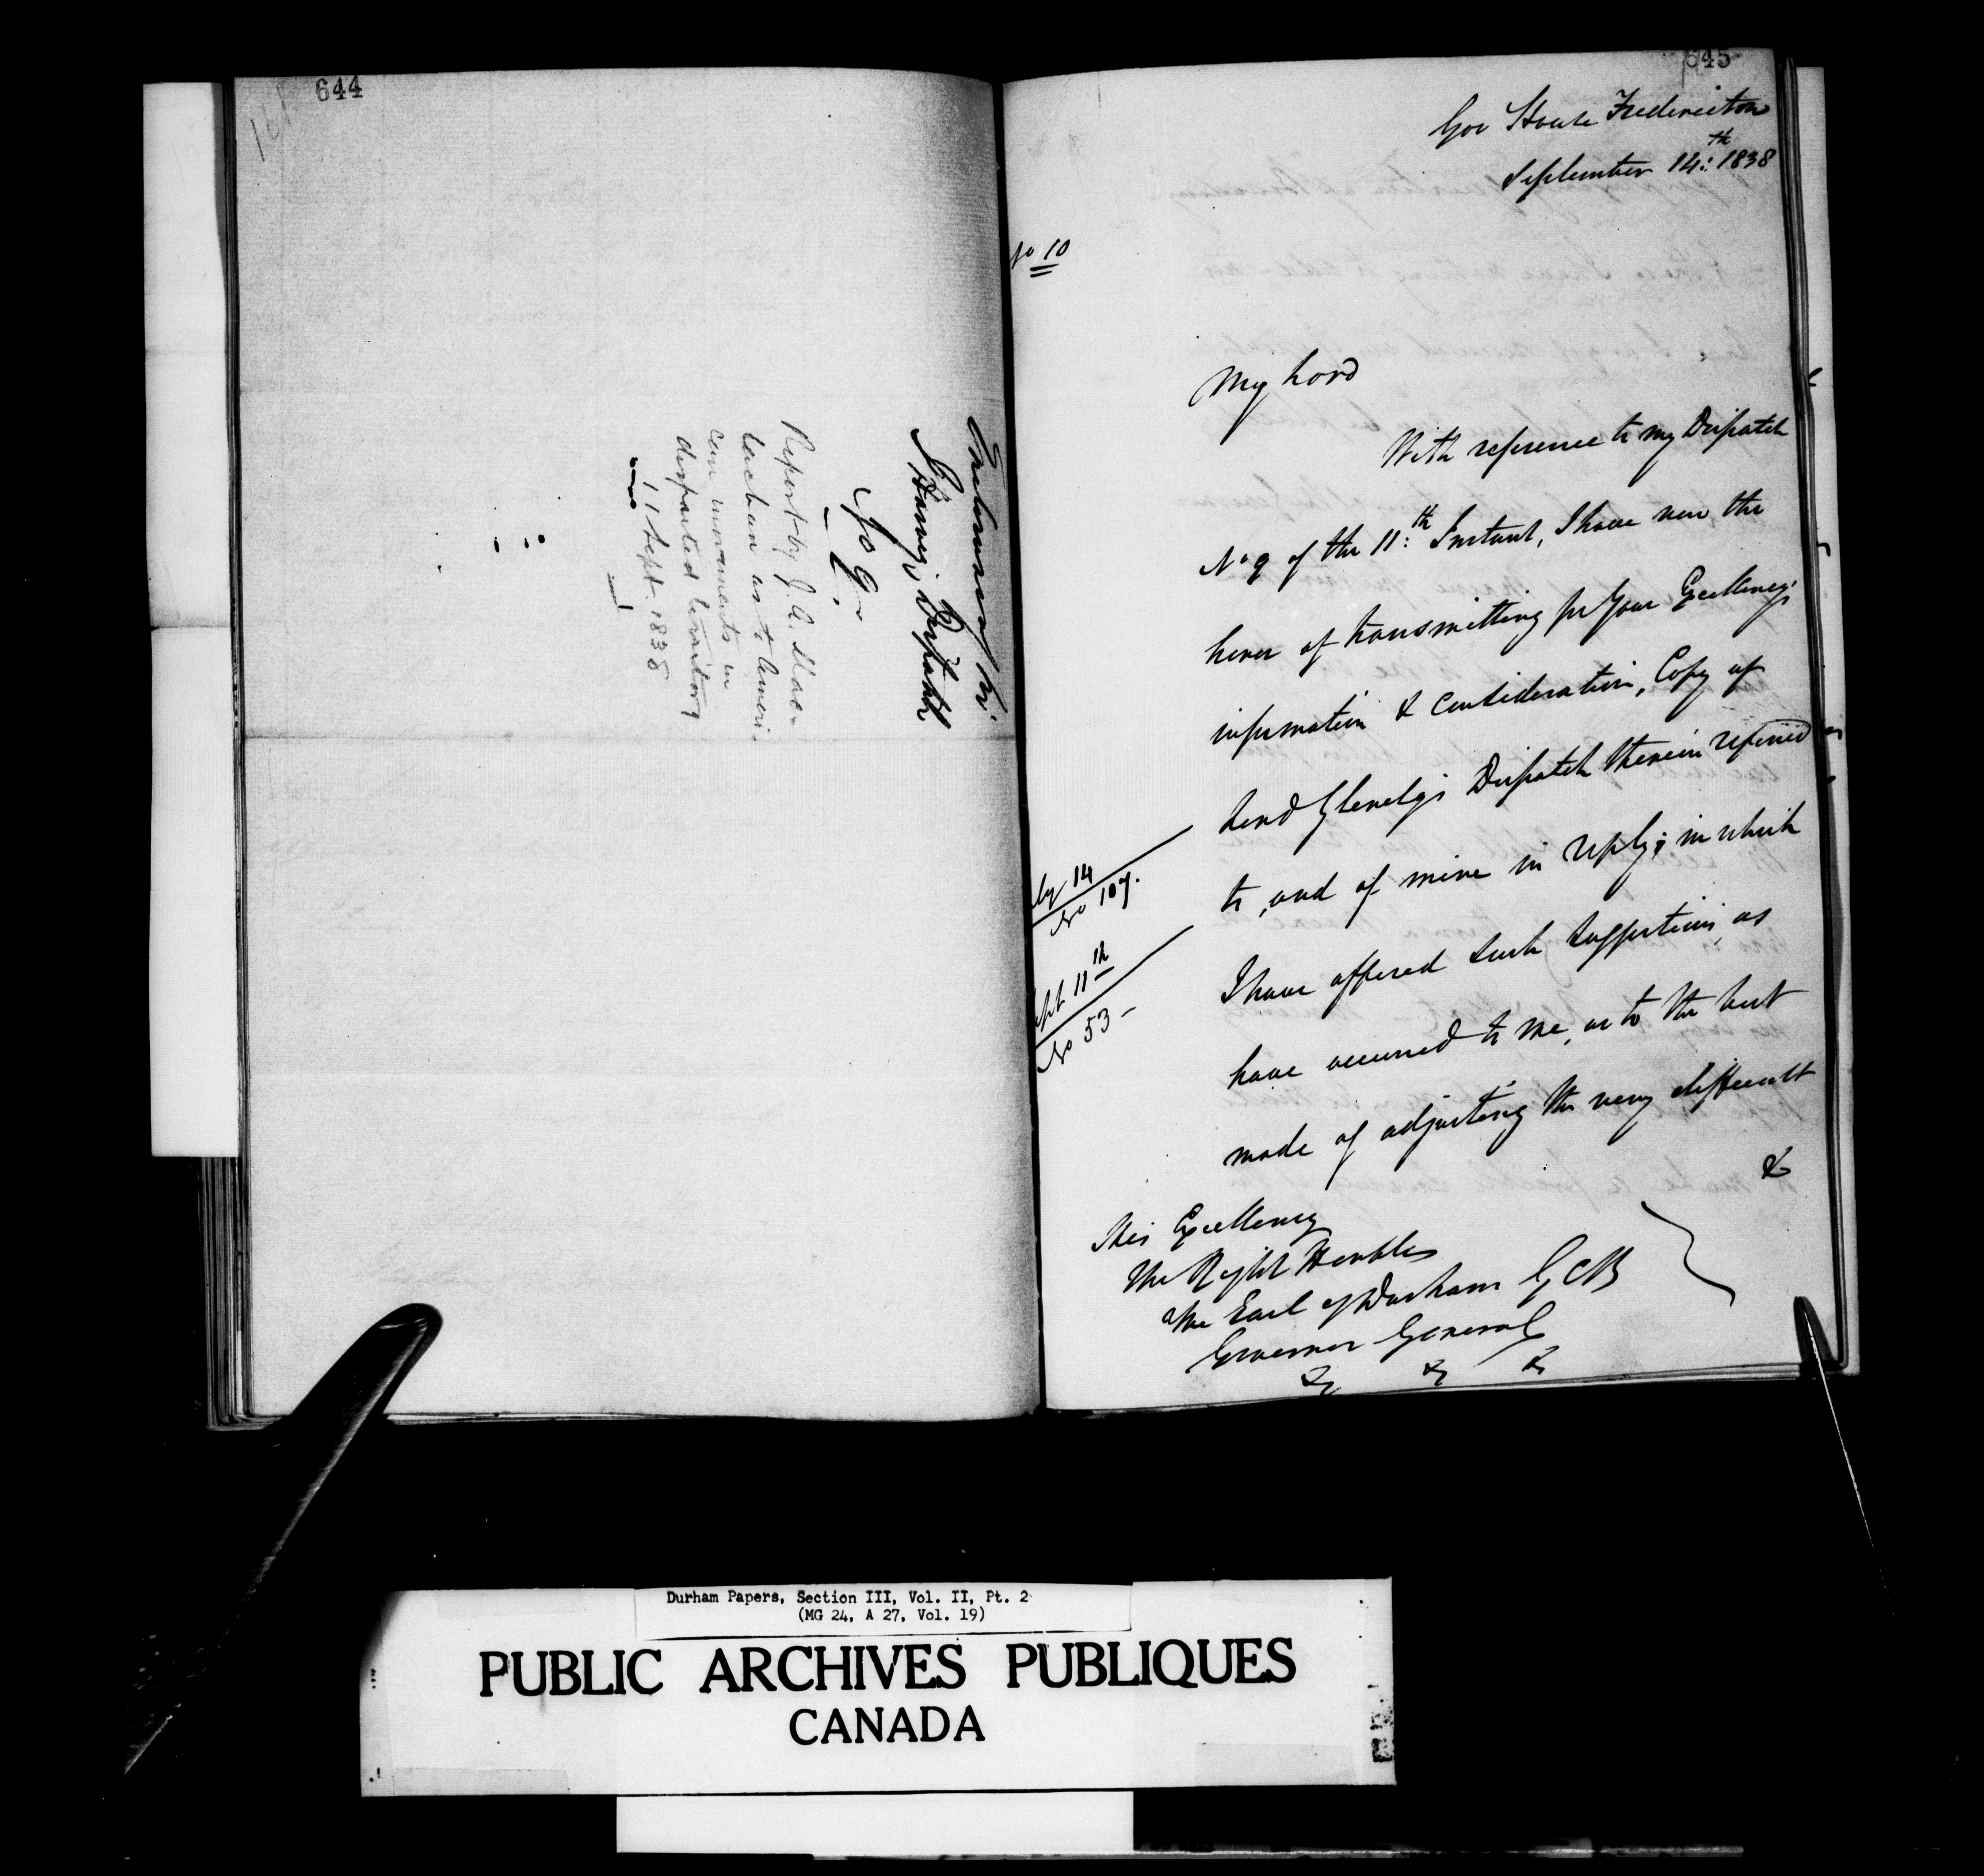 644
161
Enclosure in
Sir J Harvey's Dispatch
No 9.
Report by J. A. Mac-
lachan as to Ameri-
can movements in
disputed territory
11 Sept. 1838
645
Gov House Fredericton
September 14:th 1838
No 10
My Lord
With reference to my Dispatch
No 9 of the 11:th Instant, I have now the
honor of transmitting for Your Excellency's
information & consideration, Copy of
Lord Glenelg's Dispatch therein referred
to, and of mine in reply; in which
I have offered such suggestions, as
have occurred to me, as to the best
mode of adjusting the very difficult
&
ly 14
No 107.
ept 11th
No 53-
His Excellency
The Right Honble
The Earl of Durham GCB
Governor General
& & &
Durham Papers, Section III, Vol. II, Pt. 2
(MG 24, A 27, Vol. 19)
PUBLIC ARCHIVES PUBLIQUES
CANADA